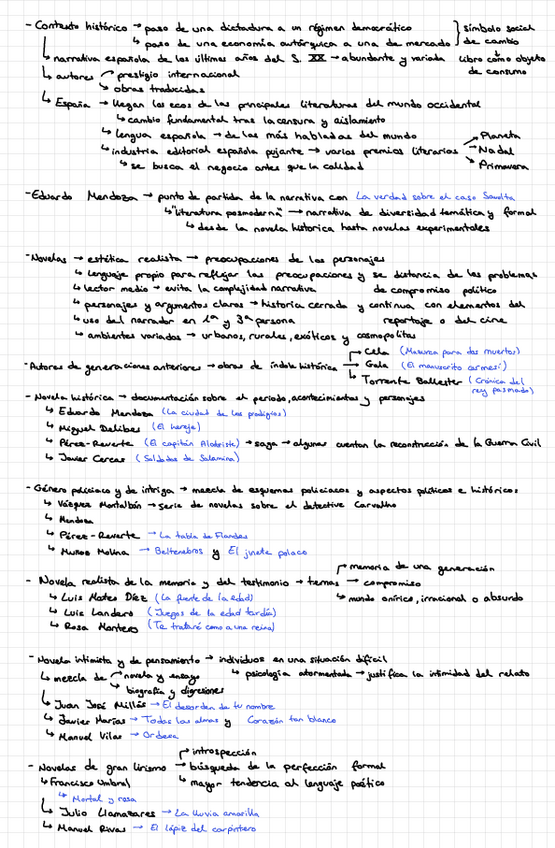 - Contexto histórico → paso de una dictadura a un régimen democrático
↳ paso de una economía autárquica a una de mercado } símbolo social de cambio
↳ narrativa española de los últimos años del S. XX → abundante y variada libro como objeto de consumo
↳ autores → prestigio internacional
↳ obras traducidas
↳ España → llegan los ecos de las principales literaturas del mundo occidental
↳ cambio fundamental tras la censura y aislamiento
↳ lengua española → de las más habladas del mundo
↳ industria editorial española pujante → varios premios literarios → Planeta
→ Nadal
→ Primavera
↳ se busca el negocio antes que la calidad
- Eduardo Mendoza → punto de partida de la narrativa con La verdad sobre el caso Savolta
↳ "literatura posmoderna" → narrativa de diversidad temática y formal
↳ desde la novela historica hasta novelas experimentales
- Novelas → estética realista → preocupaciones de los personajes
↳ lenguaje propio para reflejar las preocupaciones y se distancia de los problemas de compromiso político
↳ lector medio → evita la complejidad narrativa
↳ personajes y argumentos claros → historia cerrada y continua con elementos del reportaje o del cine
↳ uso del narrador en 1ª y 3ª persona
↳ ambientes variados → urbanos, rurales, exóticos y cosmopolitas
- Autores de generaciones anteriores → obras de índole histórica → Cela (Mazurca para dos muertos)
→ Gala (El manuscrito carmesí)
↳ Torrente Ballester (Crónica del rey pasmado)
- Novela histórica → documentación sobre el periodo, acontecimientos y personajes
↳ Eduardo Mendoza (La ciudad de los prodigios)
↳ Miguel Delibes (El hereje)
↳ Pérez-Reverte (El capitán Alatriste) → saga → algunas cuentan la reconstrucción de la Guerra Civil
↳ Javier Cercas (Soldados de Salamina)
- Género policiaco y de intriga → mezcla de esquemas policiacos y aspectos políticos e históricos
↳ Vázquez Montalbán → serie de novelas sobre el detective Carvalho
↳ Mendoza
↳ Pérez-Reverte → La tabla de Flandes
↳ Muñoz Molina → Beltenebros y El jinete polaco
- Novela realista de la memoria y del testimonio → temas → memoria de una generación
→ compromiso
↳ mundo onírico, irracional o absurdo
↳ Luis Mateo Díez (La fuente de la edad)
↳ Luis Landero (Juegos de la edad tardía)
↳ Rosa Montero (Te trataré como a una reina)
- Novela intimista y de pensamiento → individuos en una situación difícil
↳ mezcla de → novela y ensayo
↳ biografía y digresiones
↳ psicología atormentada → justifica la intimidad del relato
↳ Juan José Millás → El desorden de tu nombre
↳ Javier Marías → Todas las almas y Corazón tan blanco
↳ Manuel Vilas → Ordesa
- Novelas de gran lirismo → introspección
→ búsqueda de la perfección formal
↳ mayor tendencia al lenguaje poético
↳ Francisco Umbral
↳ Mortal y rosa
↳ Julio Llamazares → La lluvia amarilla
↳ Manuel Rivas → El lápiz del carpintero